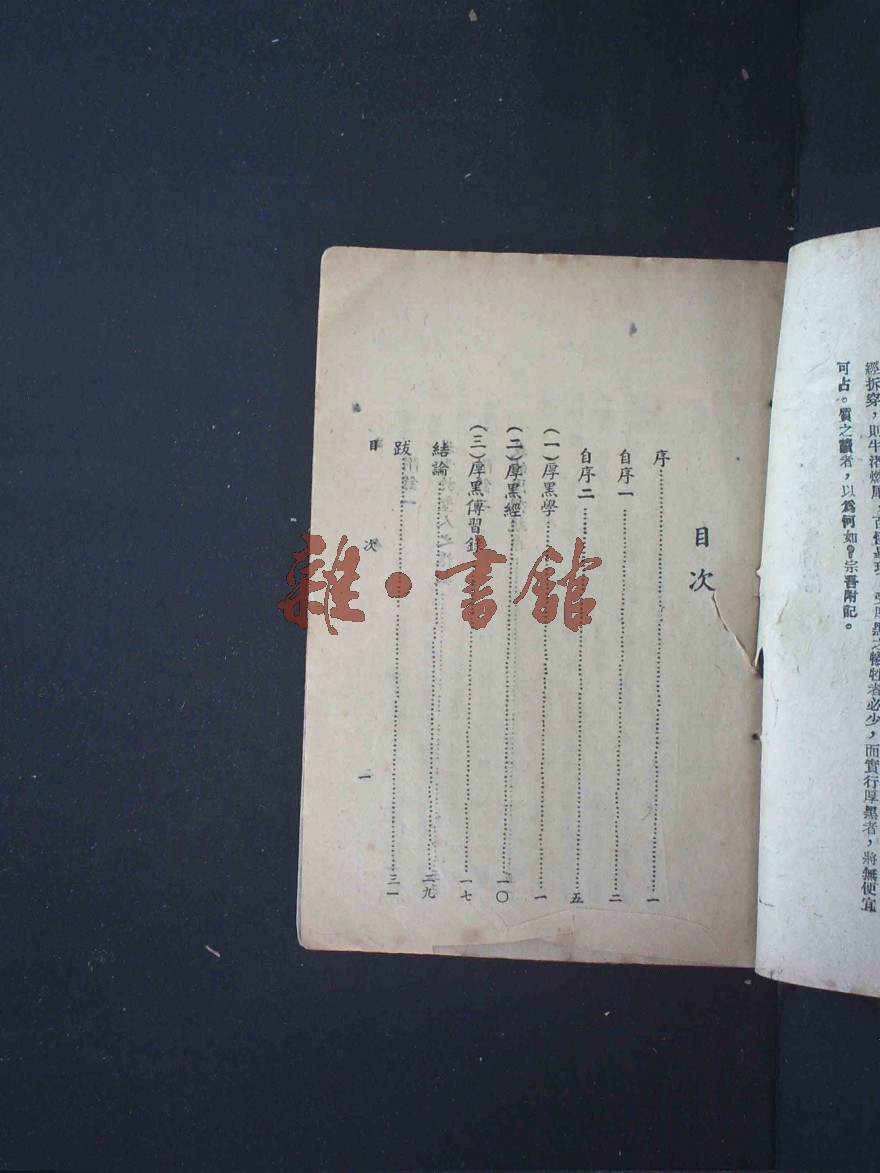 經拆穿，則牛渚燃犀，百怪畢現，
之犧牲者必少，而實行厚黑者，將無便宜
可占。質之讀者，以爲何如？宗吾附記。
目次
序……一
自序一……二
自序二……五
（一）厚黑學……一
（二）厚黑經……一〇
（三）厚黑傳習錄……一七
結論……二九
跋……三一
目 次
一
雜·書館